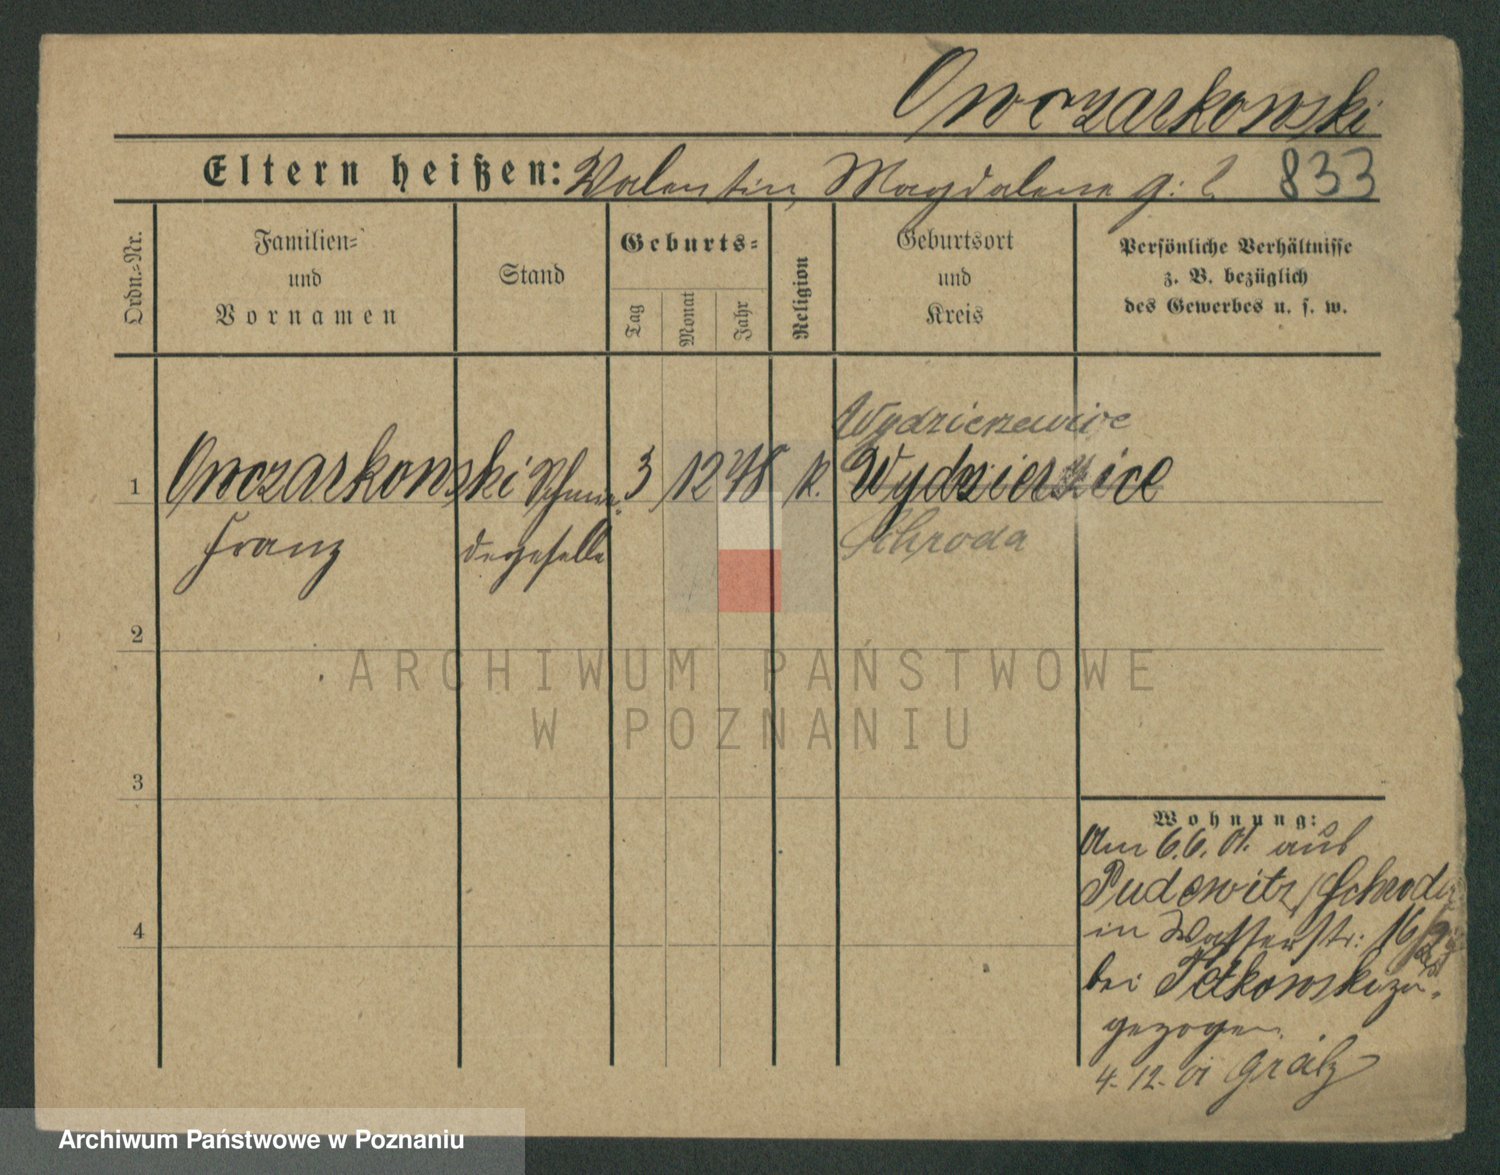 Owczarkowski
Eltern heißen: Valentin, Magdalena g: ?
833
Ordn.=Nr.
Familien=
und
Vornamen
Stand
Geburts=
Tag
Monat
Jahr
Religion
Geburtsort
und
Kreis
Persönliche Verhältnisse
z. B. bezüglich
des Gewerbes u. s. w.
Wydzierzewice
1 Owczarkowski Schmie- 3 12 78 k. Wydzierzice
Franz dergeselle Schroda
2
3
4
Wohnung:
Am 6.6.01. aus
Pudewitz/Schroda
in Wasserstr: 16
bei Petkowski zu-
gezogen.
4.12.01 Grätz
ARCHIWUM PAŃSTWOWE
W POZNANIU
Archiwum Państwowe w Poznaniu